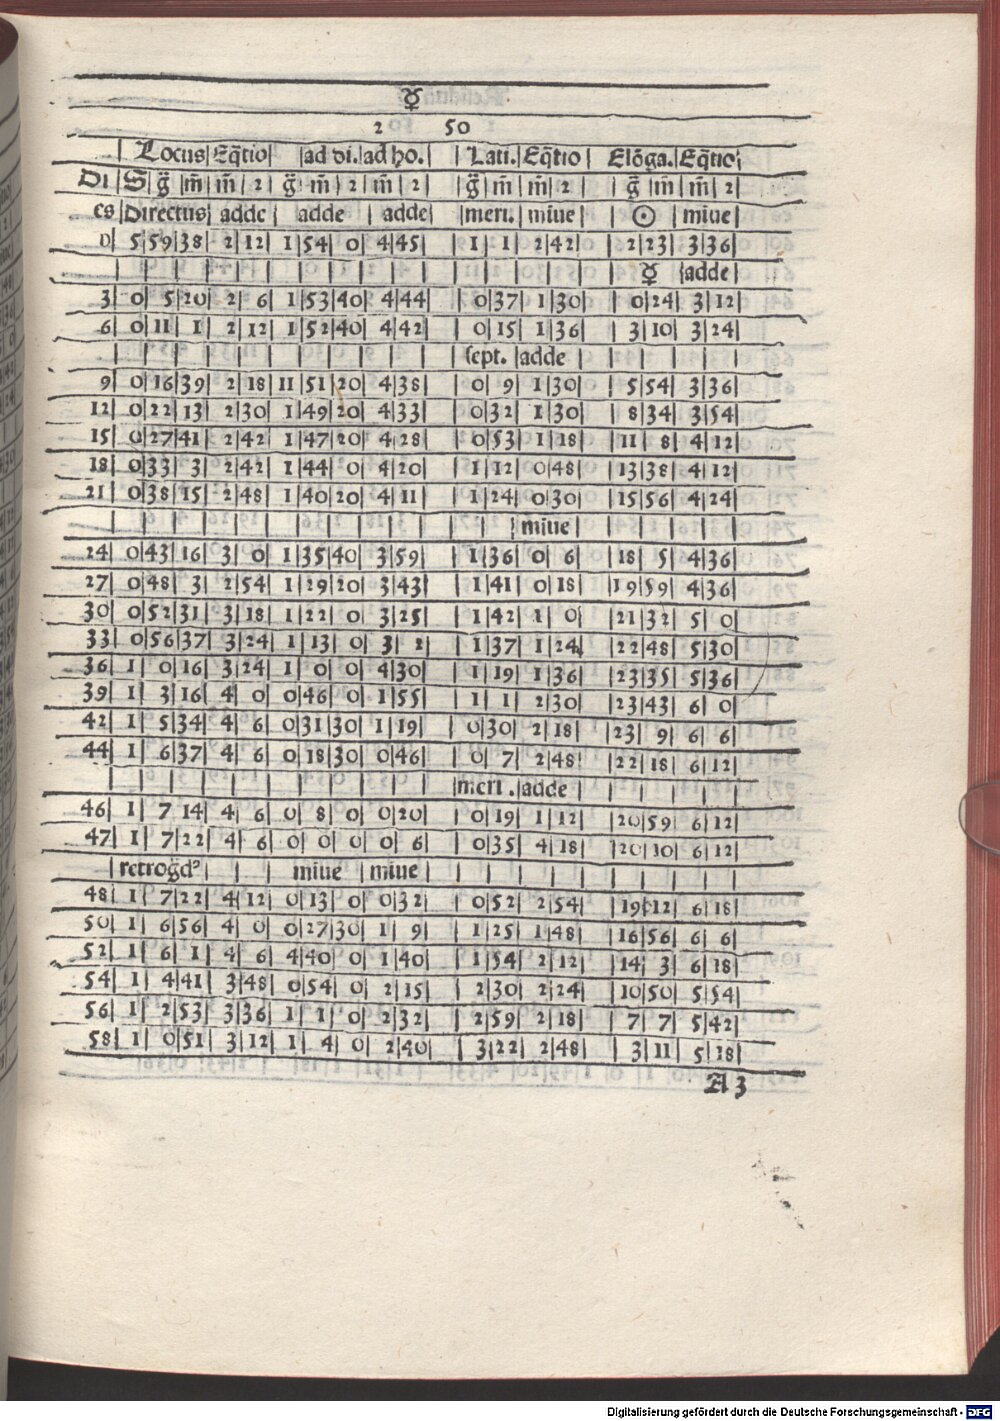 ☿
2 50
| Locus | Eq̃tio | | ad di. | ad ho. | | Lati. | Eq̃tio | Elõga. | Eq̃tio |
Di | S̃ | g̃ | m̃ | m̃ | 2 | g̃ | m̃ | 2 | m̃ | 2 | | g̃ | m̃ | m̃ | 2 | | g̃ | m̃ | m̃ | 2 |
es | Directus | adde | adde | adde | | meri. | miue | ☉ | miue |
0 | 5 | 59 | 38 | 2 | 12 | 1 | 54 | 0 | 4 | 45 | | 1 | 1 | 2 | 42 | | 2 | 23 | 3 | 36 |
☿ | adde |
3 | 0 | 5 | 20 | 2 | 6 | 1 | 53 | 40 | 4 | 44 | | 0 | 37 | 1 | 30 | | 0 | 24 | 3 | 12 |
6 | 0 | 11 | 1 | 2 | 12 | 1 | 52 | 40 | 4 | 42 | | 0 | 15 | 1 | 36 | | 3 | 10 | 3 | 24 |
sept. | adde
9 | 0 | 16 | 39 | 2 | 18 | 11 | 51 | 20 | 4 | 38 | | 0 | 9 | 1 | 30 | | 5 | 54 | 3 | 36 |
12 | 0 | 22 | 13 | 2 | 30 | 1 | 49 | 20 | 4 | 33 | | 0 | 32 | 1 | 30 | | 8 | 34 | 3 | 54 |
15 | 0 | 27 | 41 | 2 | 42 | 1 | 47 | 20 | 4 | 28 | | 0 | 53 | 1 | 18 | | 11 | 8 | 4 | 12 |
18 | 0 | 33 | 3 | 2 | 42 | 1 | 44 | 0 | 4 | 20 | | 1 | 12 | 0 | 48 | | 13 | 38 | 4 | 12 |
21 | 0 | 38 | 15 | 2 | 48 | 1 | 40 | 20 | 4 | 11 | | 1 | 24 | 0 | 30 | | 15 | 56 | 4 | 24 |
miue
24 | 0 | 43 | 16 | 3 | 0 | 1 | 35 | 40 | 3 | 59 | | 1 | 36 | 0 | 6 | | 18 | 5 | 4 | 36 |
27 | 0 | 48 | 3 | 2 | 54 | 1 | 29 | 20 | 3 | 43 | | 1 | 41 | 0 | 18 | | 19 | 59 | 4 | 36 |
30 | 0 | 52 | 31 | 3 | 18 | 1 | 22 | 0 | 3 | 25 | | 1 | 42 | 1 | 0 | | 21 | 32 | 5 | 0 |
33 | 0 | 56 | 37 | 3 | 24 | 1 | 13 | 0 | 3 | 2 | | 1 | 37 | 1 | 24 | | 22 | 48 | 5 | 30 |
36 | 1 | 0 | 16 | 3 | 24 | 1 | 0 | 0 | 4 | 30 | | 1 | 19 | 1 | 36 | | 23 | 35 | 5 | 36 |
39 | 1 | 3 | 16 | 4 | 0 | 0 | 46 | 0 | 1 | 55 | | 1 | 1 | 2 | 30 | | 23 | 43 | 6 | 0 |
42 | 1 | 5 | 34 | 4 | 6 | 0 | 31 | 30 | 1 | 19 | | 0 | 30 | 2 | 18 | | 23 | 9 | 6 | 6 |
44 | 1 | 6 | 37 | 4 | 6 | 0 | 18 | 30 | 0 | 46 | | 0 | 7 | 2 | 48 | | 22 | 18 | 6 | 12 |
meri. | adde
46 | 1 | 7 14 | 4 | 6 | 0 | 8 | 0 | 0 | 20 | | 0 | 19 | 1 | 12 | | 20 | 59 | 6 | 12 |
47 | 1 | 7 | 22 | 4 | 6 | 0 | 0 | 0 | 0 | 6 | | 0 | 35 | 4 | 18 | | 20 | 10 | 6 | 12 |
retrog̃dꝰ | miue | miue
48 | 1 | 7 | 22 | 4 | 12 | 0 | 13 | 0 | 0 | 32 | | 0 | 52 | 2 | 54 | | 19 | 12 | 6 | 18 |
50 | 1 | 6 | 56 | 4 | 0 | 0 | 27 | 30 | 1 | 9 | | 1 | 25 | 1 | 48 | | 16 | 56 | 6 | 6 |
52 | 1 | 6 | 1 | 4 | 6 | 4 | 40 | 0 | 1 | 40 | | 1 | 54 | 2 | 12 | | 14 | 3 | 6 | 18 |
54 | 1 | 4 | 41 | 3 | 48 | 0 | 54 | 0 | 2 | 15 | | 2 | 30 | 2 | 24 | | 10 | 50 | 5 | 54 |
56 | 1 | 2 | 53 | 3 | 36 | 1 | 1 | 0 | 2 | 32 | | 2 | 59 | 2 | 18 | | 7 | 7 | 5 | 42 |
58 | 1 | 0 | 51 | 3 | 12 | 1 | 4 | 0 | 2 | 40 | | 3 | 22 | 2 | 48 | | 3 | 11 | 5 | 18 |
A 3
Digitalisierung gefördert durch die Deutsche Forschungsgemeinschaft - DFG